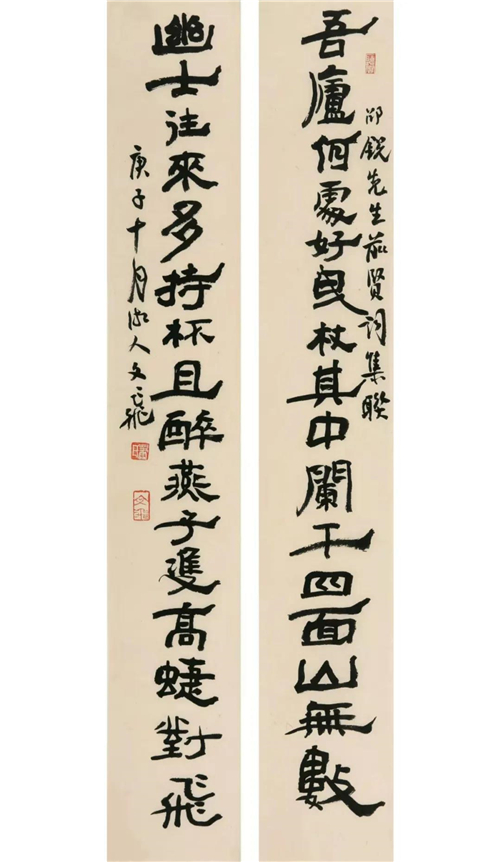 邵銳先生前賢詞集聯
吾廬何處好曳杖其中闌干四面山無數
幽士往來多持杯且醉燕子雙高蜨對飛
庚子十月湘人文飛